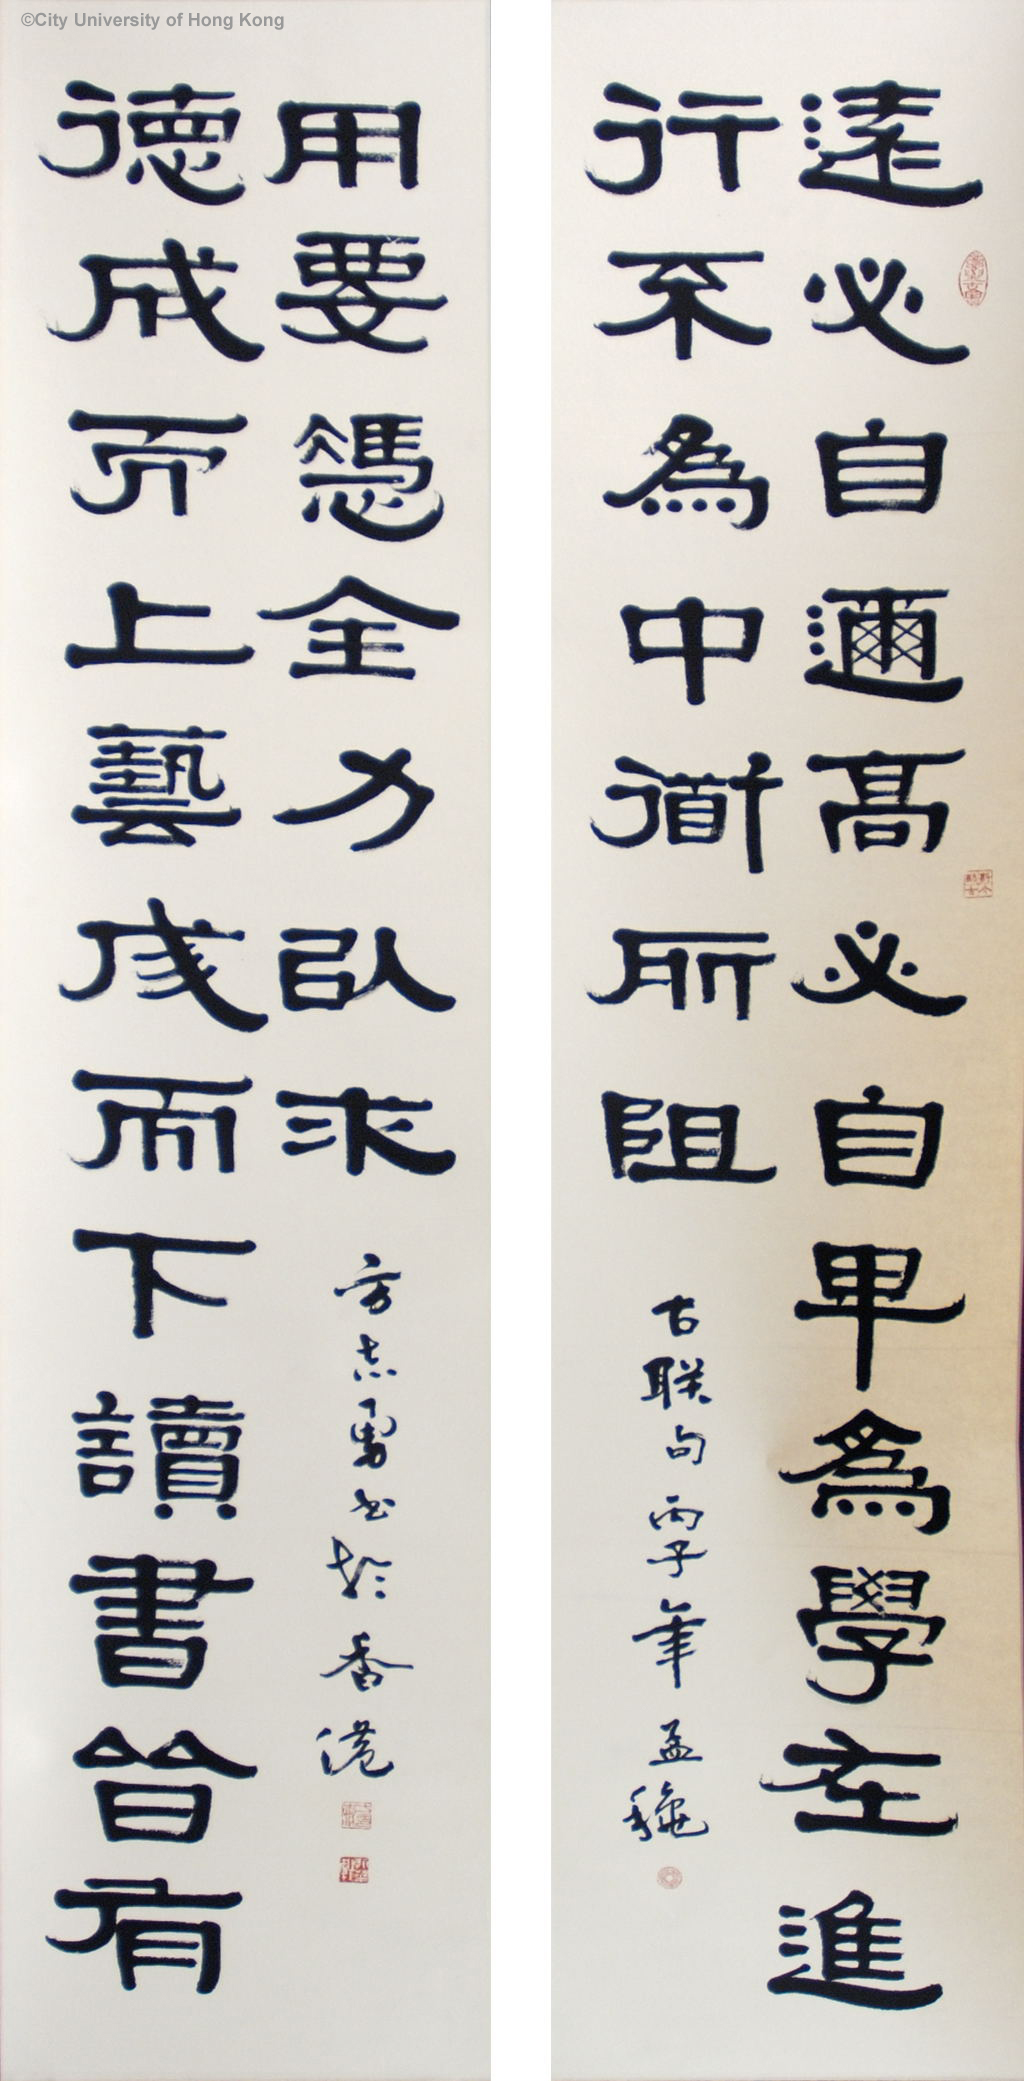 遠必自邇高必自卑為學在進
行不為中衜所阻
古聯句 丙子年 孟龝
德成而上藝成而下讀書皆有
用要憑全力以求
方志勇書於香港
©City University of Hong Kong